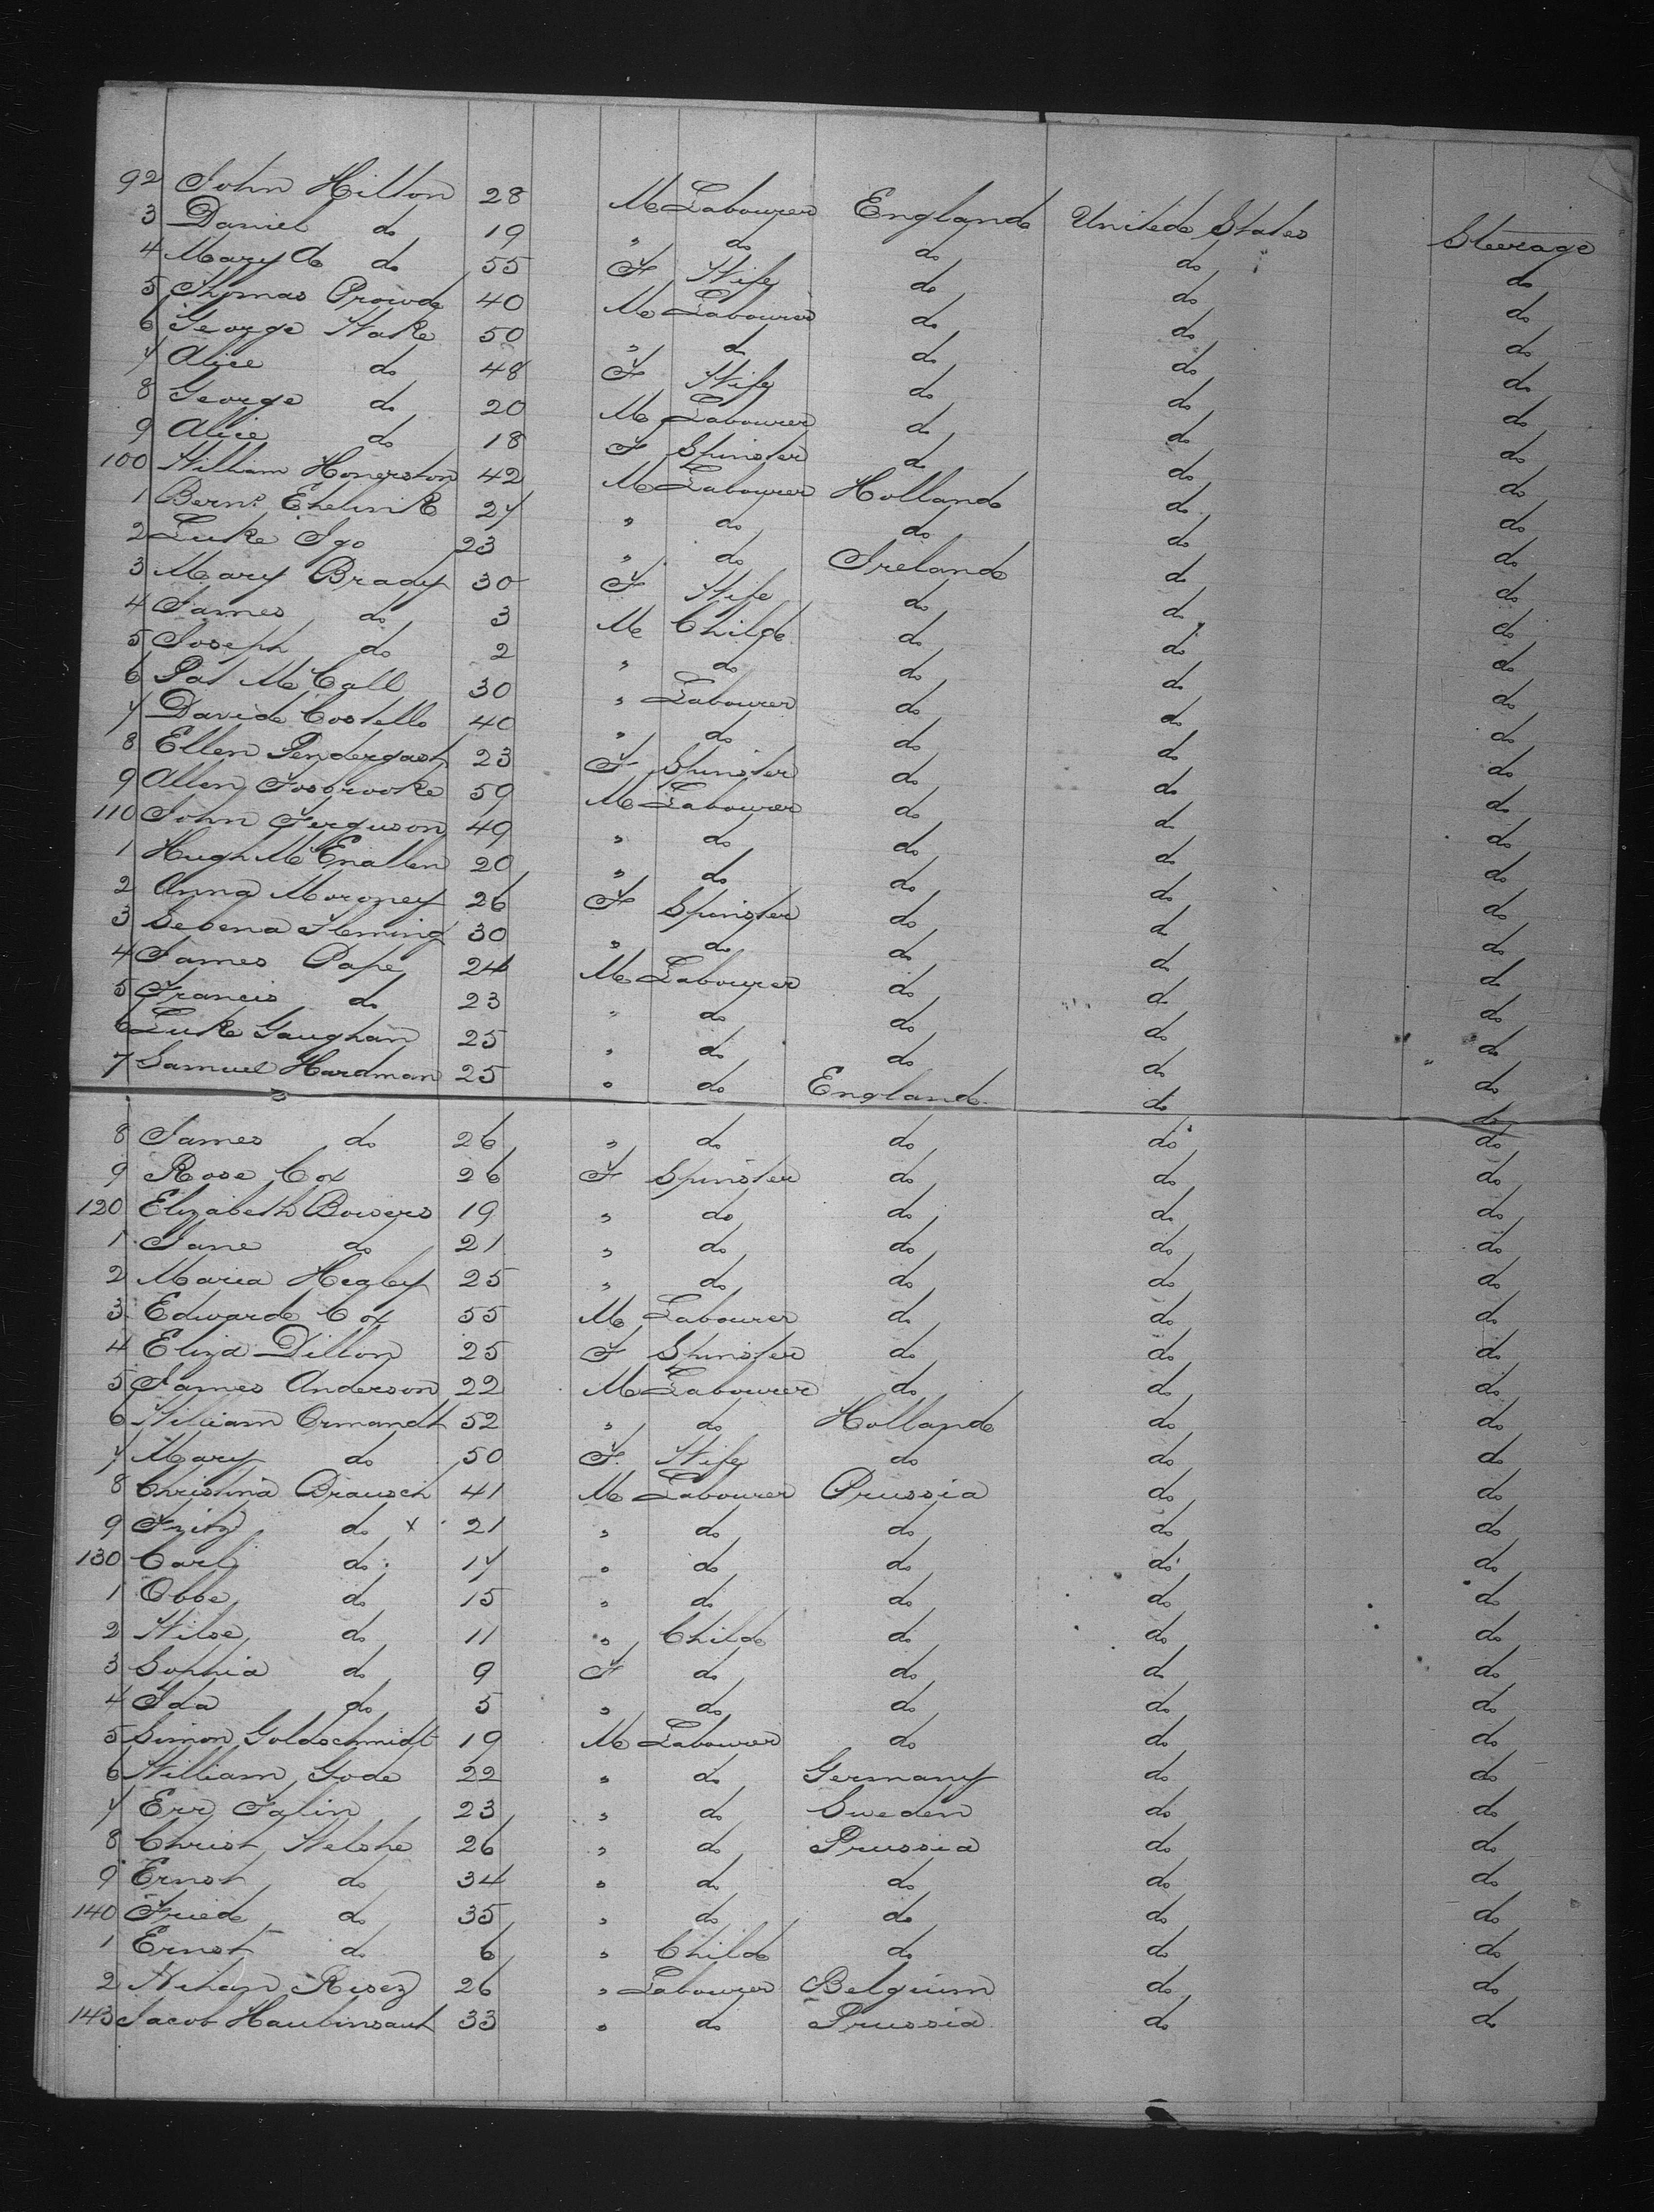 92 John Hilton 28 M Labourer England United States Steerage
3 Daniel do 19 " do do do do
4 Mary A do 55 F Wife do do do
5 Thomas Prowde 40 M Labourer do do do
6 George Wake 50 " do do do do
7 Alice do 48 F Wife do do do
8 George do 20 M Labourer do do do
9 Alice do 18 F Spinster do do do
100 William Honerston 42 M Labourer Holland do do
1 Bern. Ehelink 27 " do do do do
2 Luke Igo 23 " do Ireland do do
3 Mary Brady 30 F Wife do do do
4 James do 3 M Child do do do
5 Joseph do 2 " do do do do
6 Pat McCall 30 " Labourer do do do
7 David Costello 40 " do do do do
8 Ellen Pendergast 23 F Spinster do do do
9 Allen Fosbrooke 59 M Labourer do do do
110 John Ferguson 49 " do do do do
1 Hugh McEnallen 20 " do do do do
2 Anna Moroney 26 F Spinster do do do
3 Sebena Fleming 30 " do do do do
4 James Pape 24 M Labourer do do do
5 Francis do 23 " do do do do
6 Luke Gaughan 25 " do do do do
7 Samuel Hardman 25 " do England do do
8 James do 26 " do do do do
9 Rose Cox 26 F Spinster do do do
120 Elizabeth Bowers 19 " do do do do
1 Jane do 21 " do do do do
2 Maria Hegley 25 " do do do do
3 Edward Cox 55 M Labourer do do do
4 Eliza Dillon 25 F Spinster do do do
5 James Anderson 22 M Labourer do do do
6 William Ormandt 52 " do Holland do do
7 Mary do 50 F Wife do do do
8 Christina Brausch 41 M Labourer Prussia do do
9 Fritz do x 21 " do do do do
130 Carl do 17 " do do do do
1 Obbe do 15 " do do do do
2 Wilse do 11 " Child do do do
3 Sophia do 9 F do do do do
4 Ida do 5 " do do do do
5 Simon Goldschmidt 19 M Labourer do do do
6 William Gode 22 " do Germany do do
7 Err Falin 23 " do Sweden do do
8 Christ Welshe 26 " do Prussia do do
9 Ernst do 34 " do do do do
140 Fried do 35 " do do do do
1 Ernst do 6 " Child do do do
2 Risez 26 " Labourer Belgium do do
143 Jacob Haulinsaut 33 " do Prussia do do